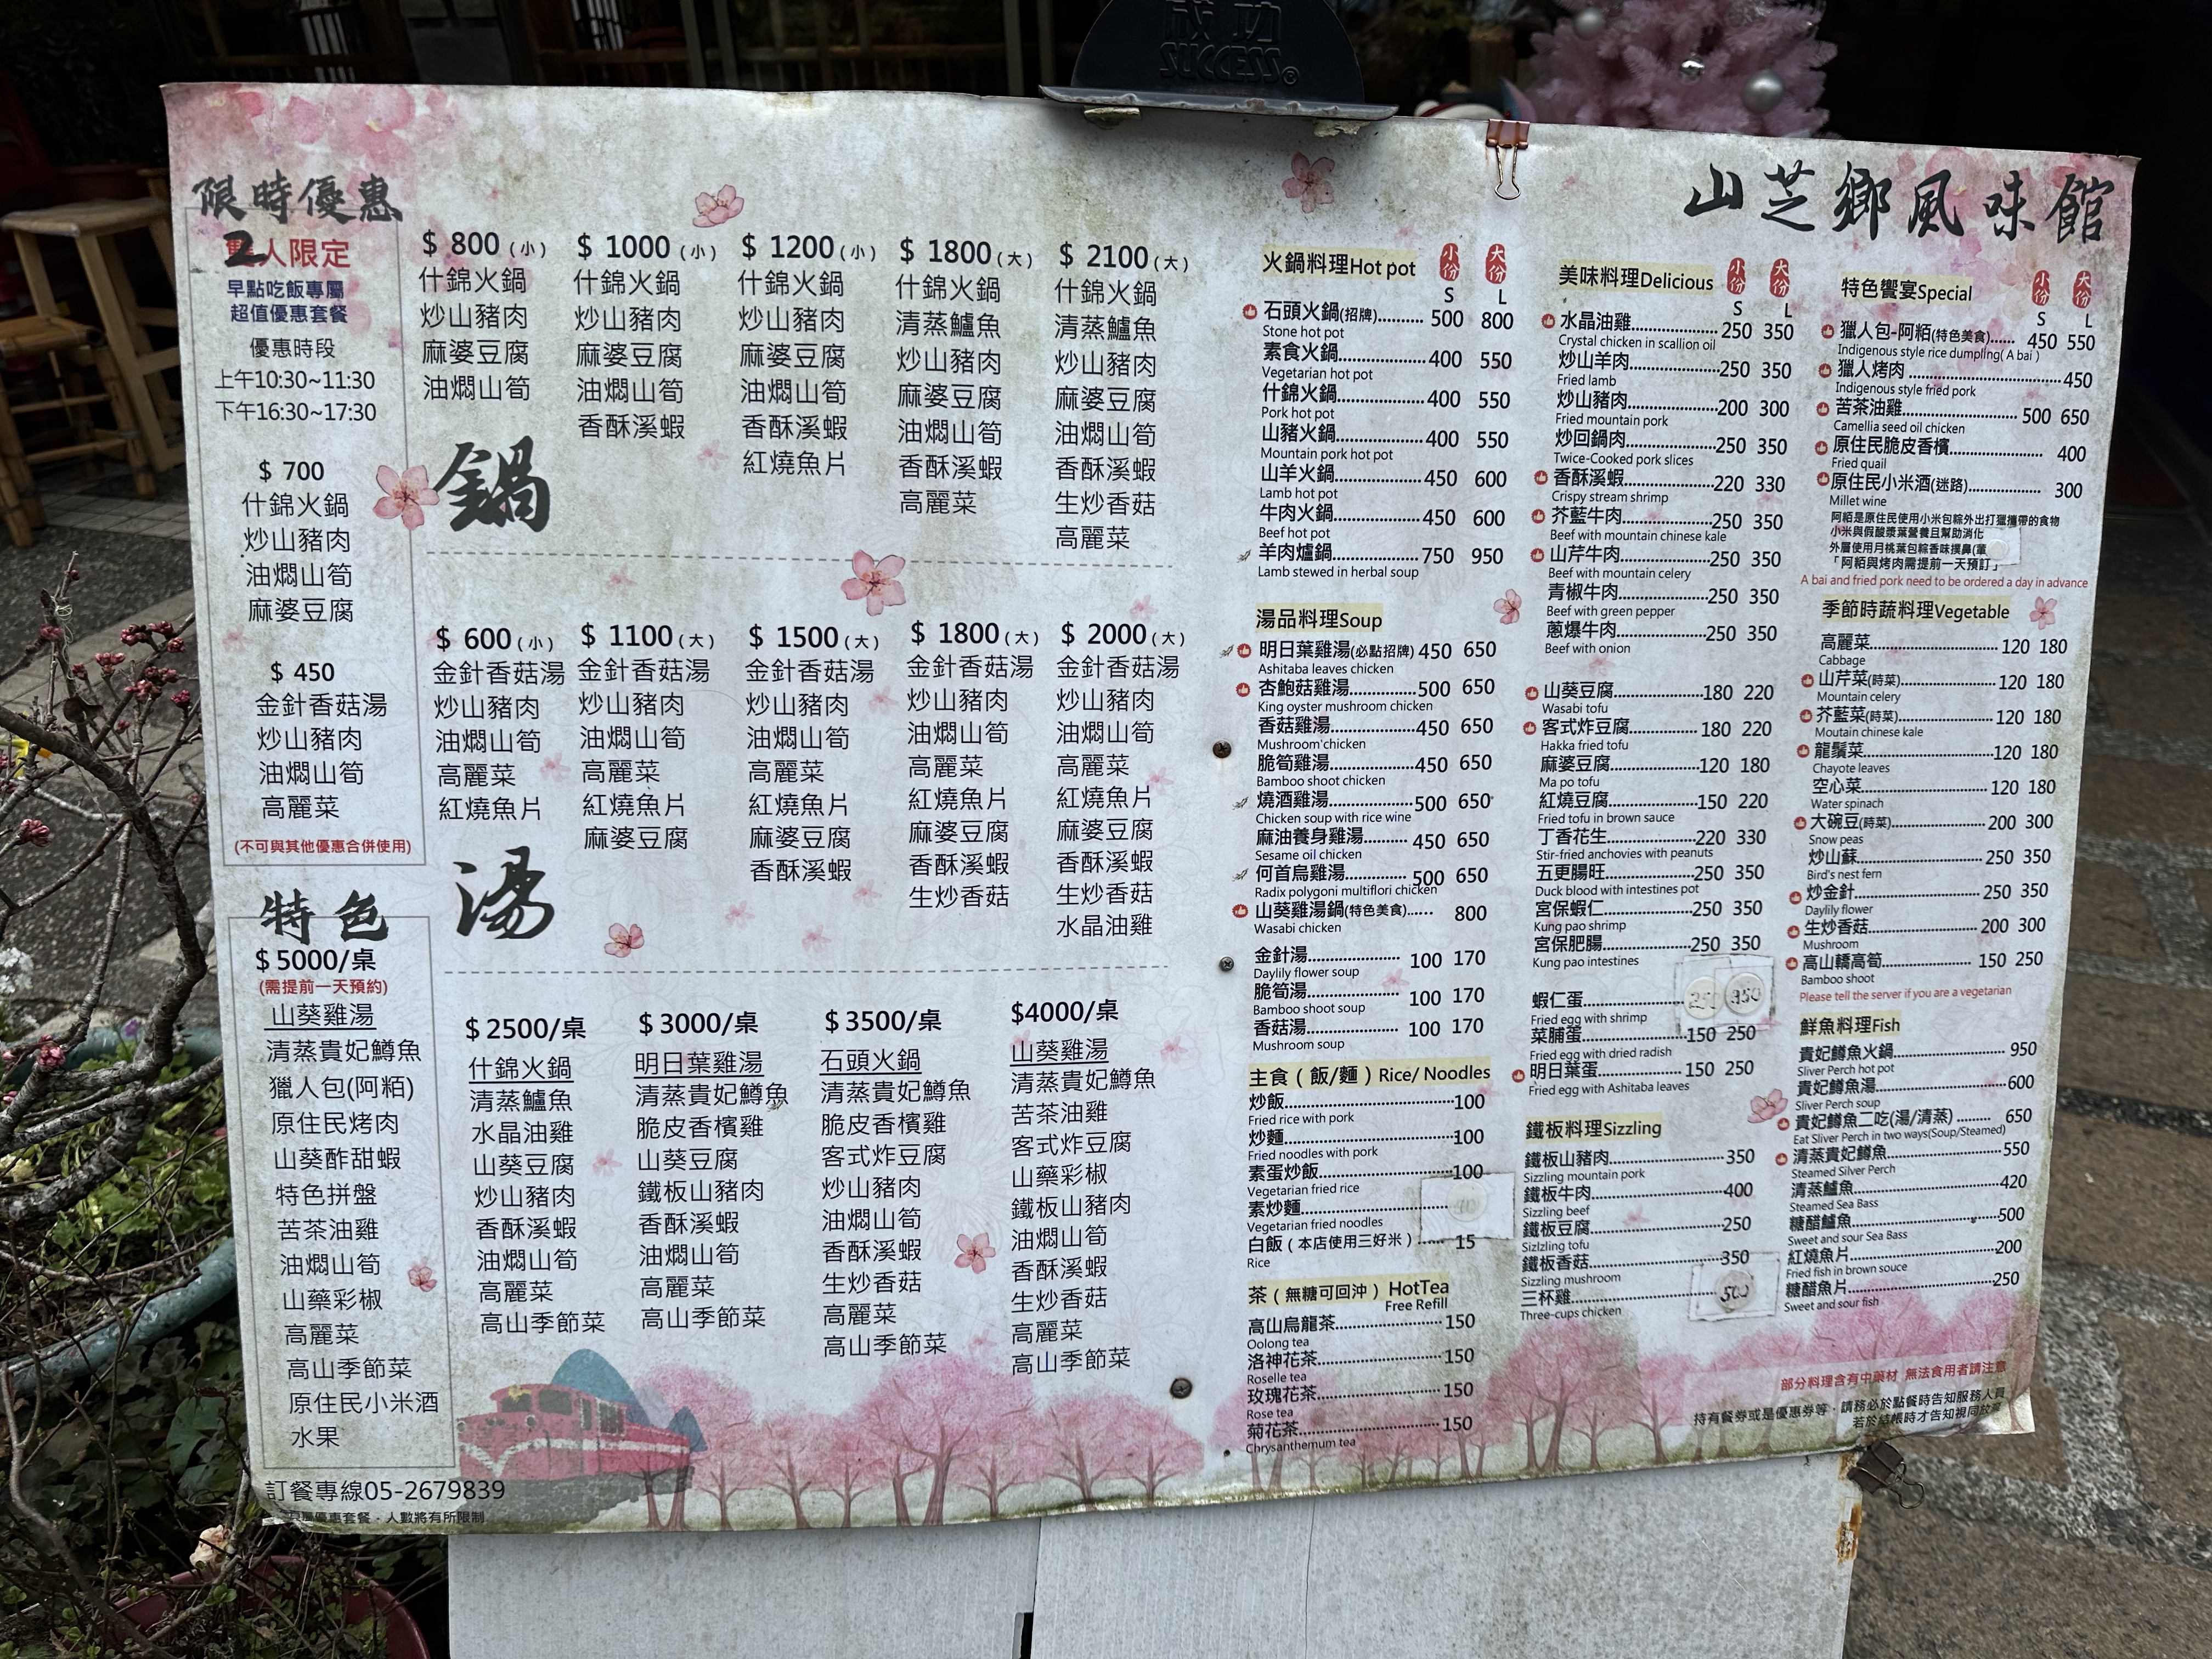 成功
SUCCESS®
山芝鄉風味館
限時優惠
2人限定
早點吃飯專屬
超值優惠套餐
優惠時段
上午10:30~11:30
下午16:30~17:30
$ 700
什錦火鍋
炒山豬肉
油燜山筍
麻婆豆腐
$ 450
金針香菇湯
炒山豬肉
油燜山筍
高麗菜
(不可與其他優惠合併使用)
特色
$5000/桌
(需提前一天預約)
山葵雞湯
清蒸貴妃鱒魚
獵人包(阿粨)
原住民烤肉
山葵酢甜蝦
特色拼盤
苦茶油雞
油燜山筍
山藥彩椒
高麗菜
高山季節菜
原住民小米酒
水果
訂餐專線05-2679839
優惠套餐，人數將有所限制
鍋
$ 800 (小)
什錦火鍋
炒山豬肉
麻婆豆腐
油燜山筍
$ 1000 (小)
什錦火鍋
炒山豬肉
麻婆豆腐
油燜山筍
香酥溪蝦
$ 1200 (小)
什錦火鍋
炒山豬肉
麻婆豆腐
油燜山筍
香酥溪蝦
紅燒魚片
$ 1800 (大)
什錦火鍋
清蒸鱸魚
炒山豬肉
麻婆豆腐
油燜山筍
香酥溪蝦
高麗菜
$ 2100 (大)
什錦火鍋
清蒸鱸魚
炒山豬肉
麻婆豆腐
油燜山筍
香酥溪蝦
生炒香菇
高麗菜
湯
$ 600 (小)
金針香菇湯
炒山豬肉
油燜山筍
高麗菜
紅燒魚片
$ 1100 (大)
金針香菇湯
炒山豬肉
油燜山筍
高麗菜
紅燒魚片
麻婆豆腐
$ 1500 (大)
金針香菇湯
炒山豬肉
油燜山筍
高麗菜
紅燒魚片
麻婆豆腐
香酥溪蝦
$ 1800 (大)
金針香菇湯
炒山豬肉
油燜山筍
高麗菜
紅燒魚片
麻婆豆腐
香酥溪蝦
生炒香菇
$ 2000 (大)
金針香菇湯
炒山豬肉
油燜山筍
高麗菜
紅燒魚片
麻婆豆腐
香酥溪蝦
生炒香菇
水晶油雞
$2500/桌
什錦火鍋
清蒸鱸魚
水晶油雞
山葵豆腐
炒山豬肉
香酥溪蝦
油燜山筍
高麗菜
高山季節菜
$3000/桌
明日葉雞湯
清蒸貴妃鱒魚
脆皮香檳雞
山葵豆腐
鐵板山豬肉
香酥溪蝦
油燜山筍
高麗菜
高山季節菜
$3500/桌
石頭火鍋
清蒸貴妃鱒魚
脆皮香檳雞
客式炸豆腐
炒山豬肉
油燜山筍
香酥溪蝦
生炒香菇
高麗菜
高山季節菜
$4000/桌
山葵雞湯
清蒸貴妃鱒魚
苦茶油雞
客式炸豆腐
山藥彩椒
鐵板山豬肉
油燜山筍
香酥溪蝦
生炒香菇
高麗菜
高山季節菜
火鍋料理Hot pot 小份 大份
S L
石頭火鍋(招牌)........ 500 800
Stone hot pot
素食火鍋.............. 400 550
Vegetarian hot pot
什錦火鍋.............. 400 550
Pork hot pot
山豬火鍋.............. 400 550
Mountain pork hot pot
山羊火鍋.............. 450 600
Lamb hot pot
牛肉火鍋.............. 450 600
Beef hot pot
羊肉爐鍋.............. 750 950
Lamb stewed in herbal soup
湯品料理Soup
明日葉雞湯(必點招牌) 450 650
Ashitaba leaves chicken
杏鮑菇雞湯...........500 650
King oyster mushroom chicken
香菇雞湯..............450 650
Mushroom chicken
脆筍雞湯..............450 650
Bamboo shoot chicken
燒酒雞湯..............500 650
Chicken soup with rice wine
麻油養身雞湯........450 650
Sesame oil chicken
何首烏雞湯...........500 650
Radix polygoni multiflori chicken
山葵雞湯鍋(特色美食)...... 800
Wasabi chicken
金針湯................. 100 170
Daylily flower soup
脆筍湯................. 100 170
Bamboo shoot soup
香菇湯................. 100 170
Mushroom soup
主食（飯/麵）Rice/ Noodles
炒飯.........................100
Fried rice with pork
炒麵.........................100
Fried noodles with pork
素蛋炒飯...................100
Vegetarian fried rice
素炒麵
Vegetarian fried noodles
白飯（本店使用三好米）...... 15
Rice
茶（無糖可回沖）HotTea
Free Refill
高山烏龍茶................150
Oolong tea
洛神花茶...................150
Roselle tea
玫瑰花茶...................150
Rose tea
菊花茶......................150
Chrysanthemum tea
美味料理Delicious 小份 大份
S L
水晶油雞..................250 350
Crystal chicken in scallion oil
炒山羊肉..................250 350
Fried lamb
炒山豬肉..................200 300
Fried mountain pork
炒回鍋肉..................250 350
Twice-Cooked pork slices
香酥溪蝦..................220 330
Crispy stream shrimp
芥藍牛肉..................250 350
Beef with mountain chinese kale
山芹牛肉..................250 350
Beef with mountain celery
青椒牛肉..................250 350
Beef with green pepper
蔥爆牛肉..................250 350
Beef with onion
山葵豆腐..................180 220
Wasabi tofu
客式炸豆腐...............180 220
Hakka fried tofu
麻婆豆腐..................120 180
Ma po tofu
紅燒豆腐..................150 220
Fried tofu in brown sauce
丁香花生..................220 330
Stir-fried anchovies with peanuts
五更腸旺..................250 350
Duck blood with intestines pot
宮保蝦仁..................250 350
Kung pao shrimp
宮保肥腸..................250 350
Kung pao intestines
蝦仁蛋..................... 350
Fried egg with shrimp
菜脯蛋.....................150 250
Fried egg with dried radish
明日葉蛋..................150 250
Fried egg with Ashitaba leaves
鐵板料理Sizzling
鐵板山豬肉......................350
Sizzling mountain pork
鐵板牛肉.........................400
Sizzling beef
鐵板豆腐.........................250
Sizlzling tofu
鐵板香菇.........................350
Sizzling mushroom
三杯雞............................500
Three-cups chicken
特色饗宴Special 小份 大份
S L
獵人包-阿粨(特色美食)...... 450 550
Indigenous style rice dumpling( A bai )
獵人烤肉 ...........................450
Indigenous style fried pork
苦茶油雞 .................... 500 650
Camellia seed oil chicken
原住民脆皮香檳................... 400
Fried quail
原住民小米酒(迷路)............. 300
Millet wine
阿粨是原住民使用小米包粽外出打獵攜帶的食物
小米與假酸漿葉營養且幫助消化
外層使用月桃葉包粽香味撲鼻(葷
「阿粨與烤肉需提前一天預訂」
A bai and fried pork need to be ordered a day in advance
季節時蔬料理Vegetable
高麗菜.........................120 180
Cabbage
山芹菜(時菜)...................120 180
Mountain celery
芥藍菜(時菜)...................120 180
Moutain chinese kale
龍鬚菜.........................120 180
Chayote leaves
空心菜.........................120 180
Water spinach
大碗豆(時菜)...................200 300
Snow peas
炒山蘇.........................250 350
Bird's nest fern
炒金針.........................250 350
Daylily flower
生炒香菇......................200 300
Mushroom
高山轎高筍...................150 250
Bamboo shoot
Please tell the server if you are a vegetarian
鮮魚料理Fish
貴妃鱒魚火鍋........................950
Sliver Perch hot pot
貴妃鱒魚湯...........................600
Sliver Perch soup
貴妃鱒魚二吃(湯/清蒸) ........ 650
Eat Sliver Perch in two ways(Soup/Steamed)
清蒸貴妃鱒魚........................550
Steamed Silver Perch
清蒸鱸魚..............................420
Steamed Sea Bass
糖醋鱸魚..............................500
Sweet and sour Sea Bass
紅燒魚片..............................200
Fried fish in brown souce
糖醋魚片..............................250
Sweet and sour fish
部分料理含有中藥材 無法食用者請注意
持有餐券或是優惠券等，請務必於點餐時告知服務人員
若於結帳時才告知視同放棄